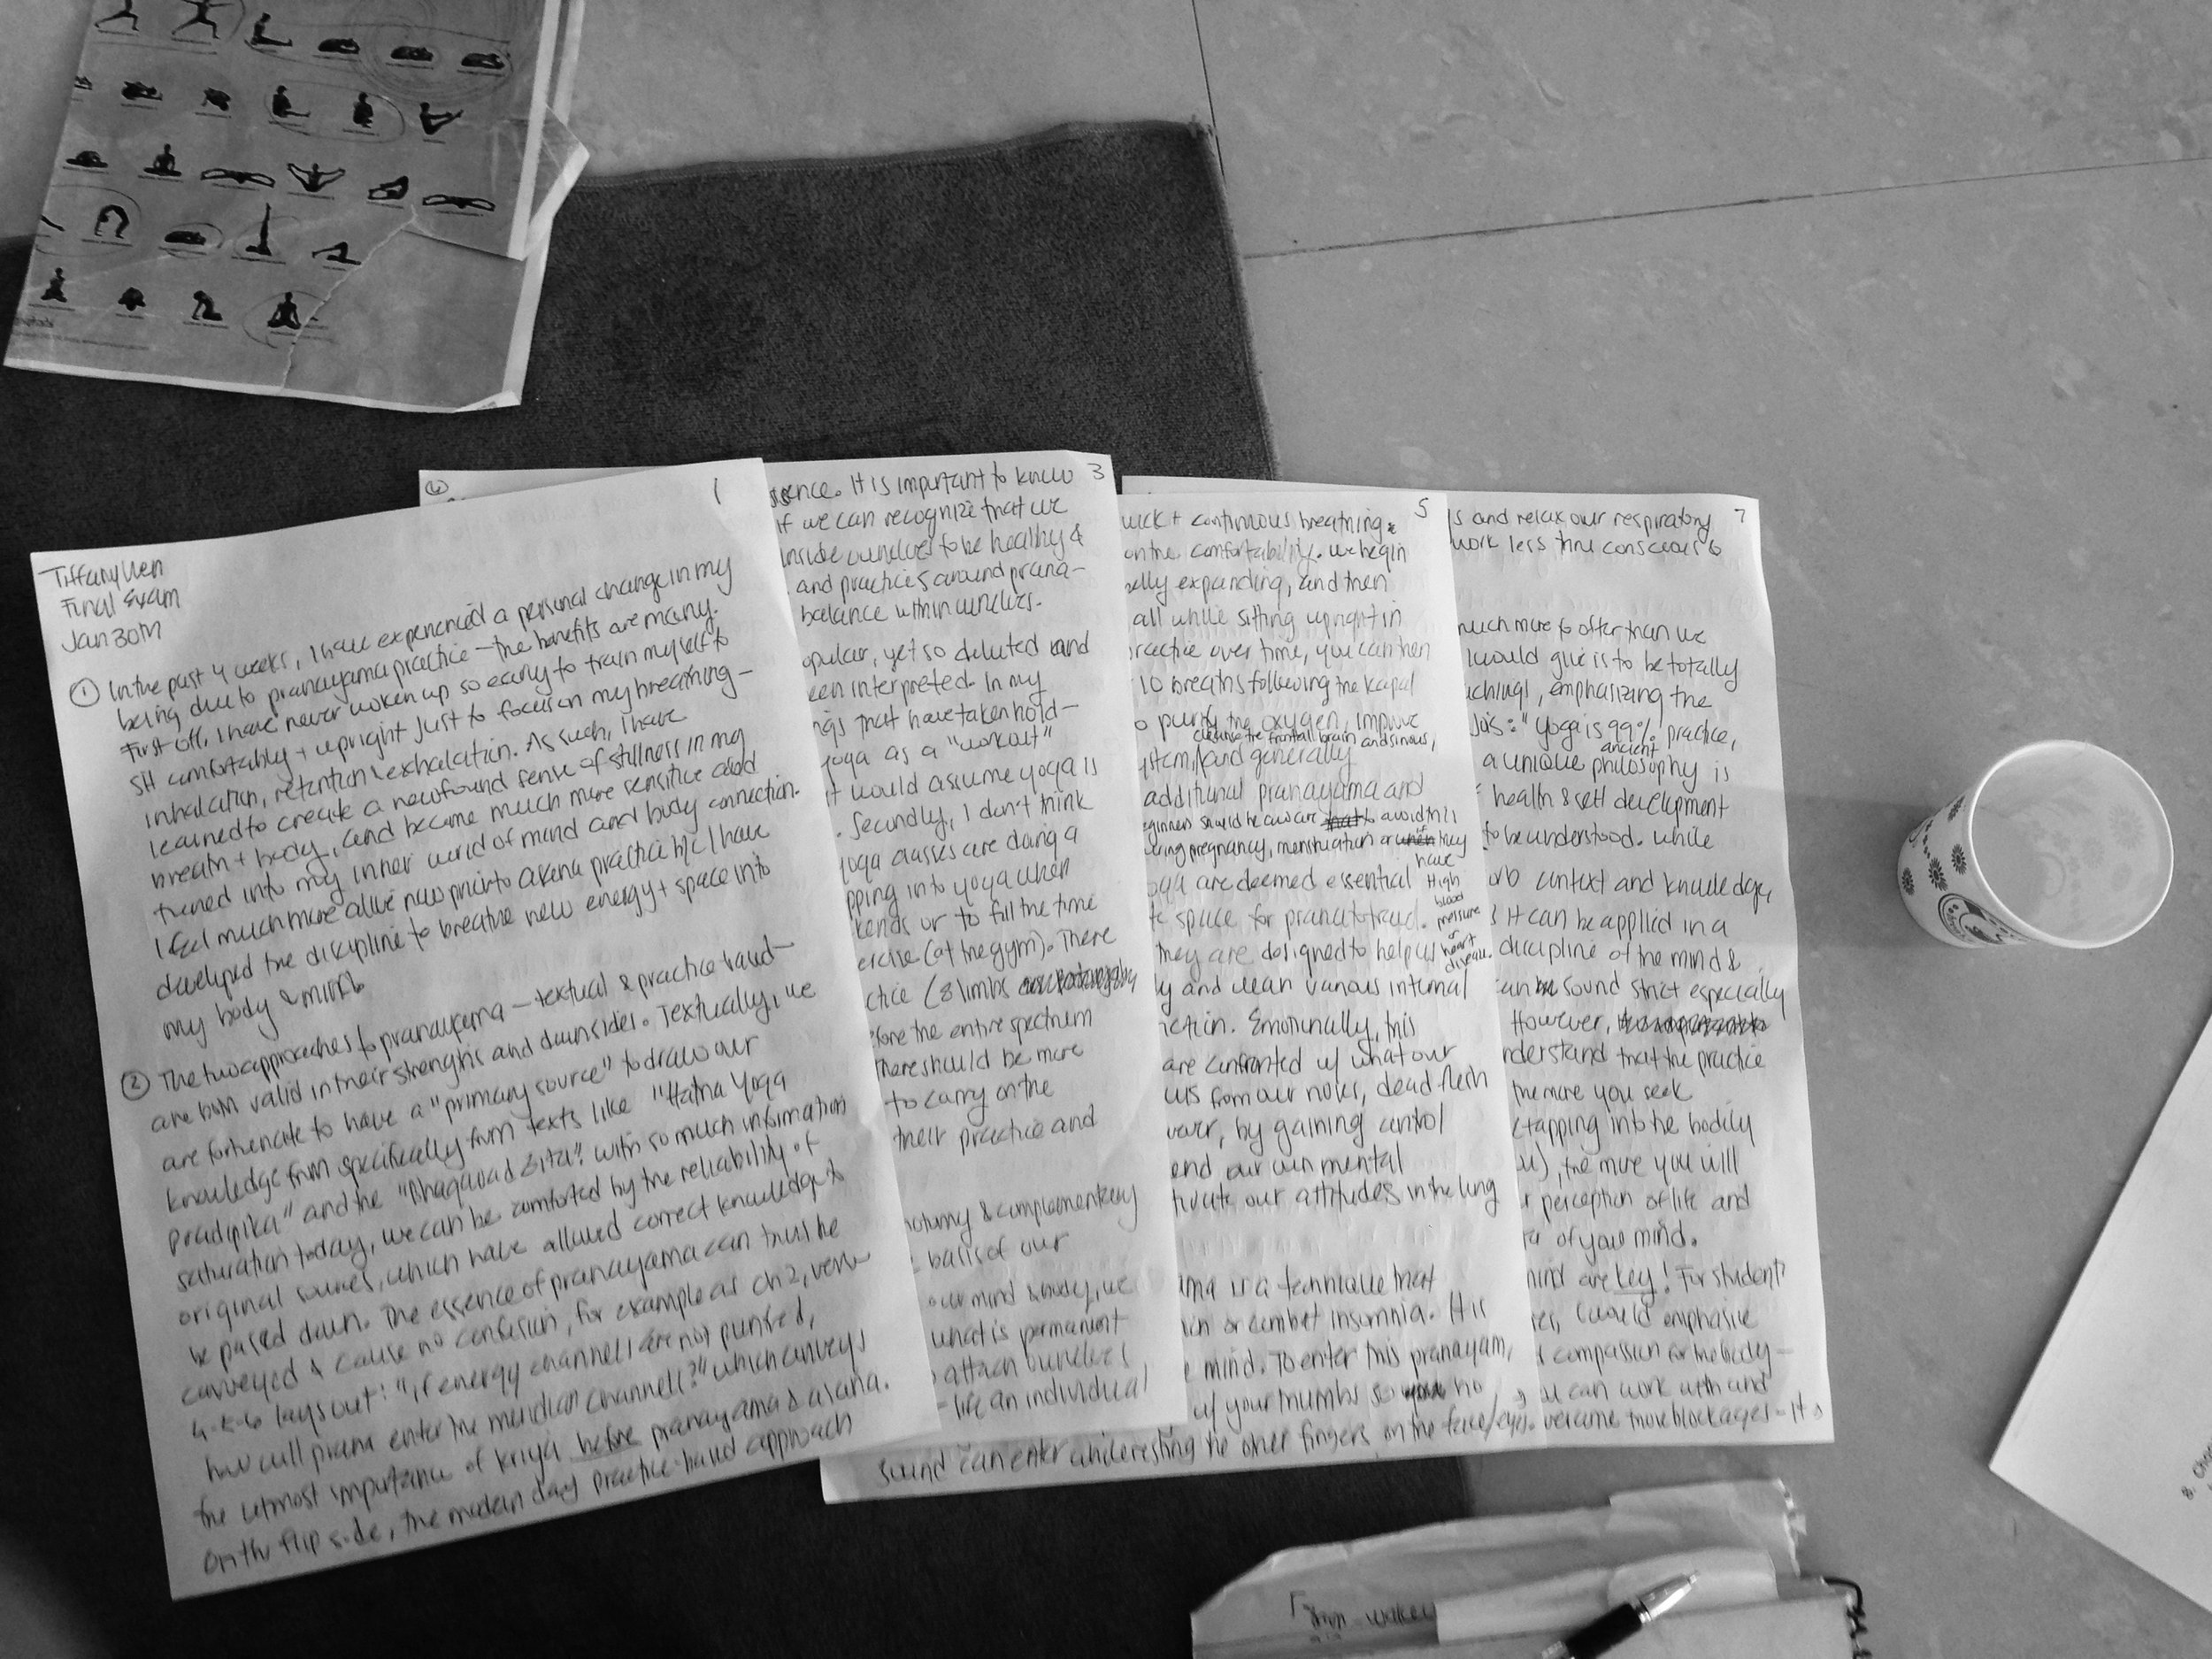 1
Tiffany Wen
Final Exam
Jan 30th
① In the past 4 weeks, I have experienced a personal change in my
being due to pranayama practice — the benefits are many.
First off, I have never woken up so early to train myself to
sit comfortably + upright just to focus on my breathing —
inhalation, retention & exhalation. As such, I have
learned to create a newfound sense of stillness in my
breath + body, and become much more sensitive and
tuned into my inner world of mind and body connection.
I feel much more alive now prior to asana practice b/c I have
developed the discipline to breathe new energy + space into
my body & mind.
② The two approaches to pranayama — textual & practice based —
are both valid in their strengths and downsides. Textually, we
are fortunate to have a "primary source" to draw our
knowledge from specifically from texts like "Hatha Yoga
Pradipika" and the "Bhagavad Gita". With so much information
saturation today, we can be comforted by the reliability of
original sources, which have allowed correct knowledge to
be passed down. The essence of pranayama can thus be
conveyed & cause no confusion, for example as ch 2, verse
4-5-6 lays out: "if energy channels are not purified,
how will prana enter the meridian channels?" which conveys
the utmost importance of kriya before pranayama & asana.
On the flip side, the modern day practice-based approach
3
It is important to know
if we can recognize that we
inside ourselves to be healthy &
and practices around prana-
balance within ourselves.
opular, yet so diluted and
een interpreted. In my
ngs that have taken hold —
yoga as a "workout"
t would assume yoga is
. Secondly, I don't think
yoga classes are doing a
pping into yoga when
kends or to fill the time
ercise (at the gym). There
ctice (8 limbs
efore the entire spectrum
There should be more
to carry on the
their practice and
natomy & complementary
basis of our
our mind & body, we
what is permanent
attach ourselves
life an individual
5
uick + continuous breathing.
on the comfortability. We begin
belly expanding, and then
all while sitting upright in
practice over time, you can then
10 breaths following the Kapal
o purify the oxygen, improve
cleanse the frontal brain and sinuses,
ystem, and generally
additional pranayama and
eginners should be aware that to avoid this
uring pregnancy, menstruation or when if they
have
High
blood
pressure
or
heart
disease.
oga are deemed essential
te space for prana to travel.
They are designed to help us
ly and clean various internal
Emotionally, this
are confronted w/ what our
us from our noses, dead flesh
wever, by gaining control
end our own mental
tivate our attitudes in the long
ama is a technique that
or combat insomnia. It is
e mind. To enter this pranayam,
w/ your thumbs so no
sound can enter while resting the other fingers on the face/eyes.
7
ls and relax our respiratory
work less thru conscious
much more to offer than we
I would give is to be totally
emphasizing the
"Yoga is 99% practice,
ancient
a unique philosophy is
health & self development
to be understood. While
orb context and knowledge,
it can be applied in a
discipline of the mind &
can sound strict especially
However,
nderstand that the practice
the more you seek
tapping into the bodily
the more you will
r perception of life and
of your mind.
mind are key! For students
I would emphasize
compassion for the body —
can work with and
overcome those blockages — it
8.